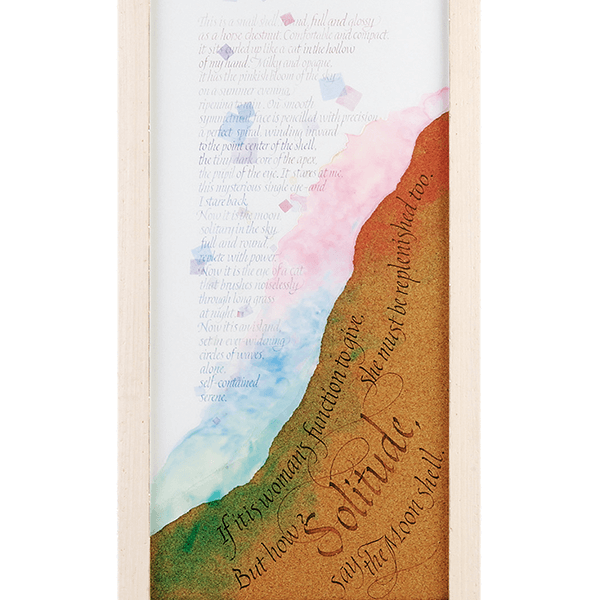 This is a snail shell, round, full and glossy
as a horse chestnut. Comfortable and compact,
it sits curled up like a cat in the hollow
of my hand. Milky and opaque,
it has the pinkish bloom of the sky
on a summer evening,
ripening to rain. On its smooth
symmetrical face is pencilled with precision
a perfect spiral, winding inward
to the point center of the shell,
the tiny dark core of the apex,
the pupil of the eye. It stares at me,
this mysterious single eye–and
I stare back.
Now it is the moon,
solitary in the sky,
full and round,
replete with power.
Now it is the eye of a cat
that brushes noiselessly
through long grass
at night.
Now it is an island,
set in ever-widening
circles of waves,
alone,
self-contained
serene.
If it is woman's function to give,
she must be replenished too.
But how?
Solitude,
say the Moon shell.